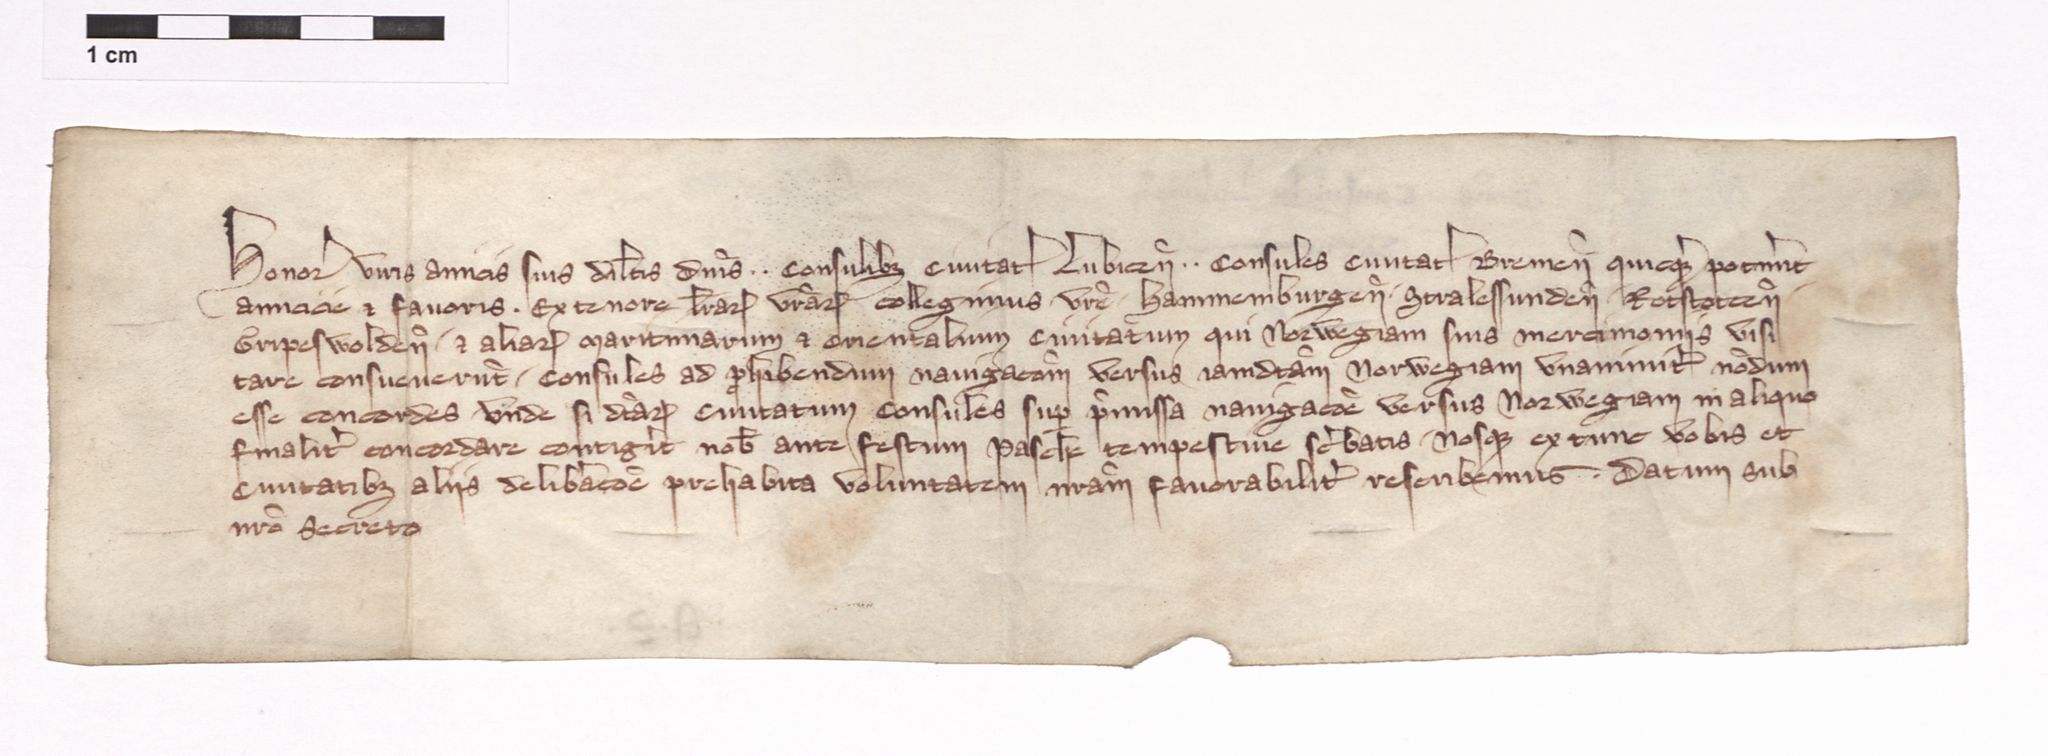 1 cm
Honorꝝ viris amicis suis dil̄tis dn̄is ·· Consulibꝫ Ciuitatꝭ Lubicen̄ ·· Consules Ciuitatꝭ Bremen̄ quicqꝫ pot̄int
amicicie ⁊ fauoris . Ex tenore lr̄aꝝ vr̄aꝝ collegimus vr̄e · Hammemburgen̄ · Stralessunden̄ · Rotstoccen̄ ·
Gripeswolden̄ · ⁊ aliaꝝ maritimarum ⁊ orientalium Ciuitatum qui Norwegiam suis mercimoniis visi
tare consueuerūt · Consules ad ꝓhibendum nauigacōem versus iamdc̄am Norwegiam vnanimitˀ nōdum
esse concordes vnde si dc̄aꝝ Ciuitatum Consules suꝑ p̄missa nauigacōe versus Norwegiam in aliquo
finalitˀ concordare contigˀit nob̄ ante festum Pasche tempestiue sc̄batis · Nosqꝫ ex tunc vobis et
Ciuitatibꝫ aliis delibˀacōe prehabita voluntatem nr̄am fauorabilitˀ rescribemus · Datum sub
nr̄o Secreto